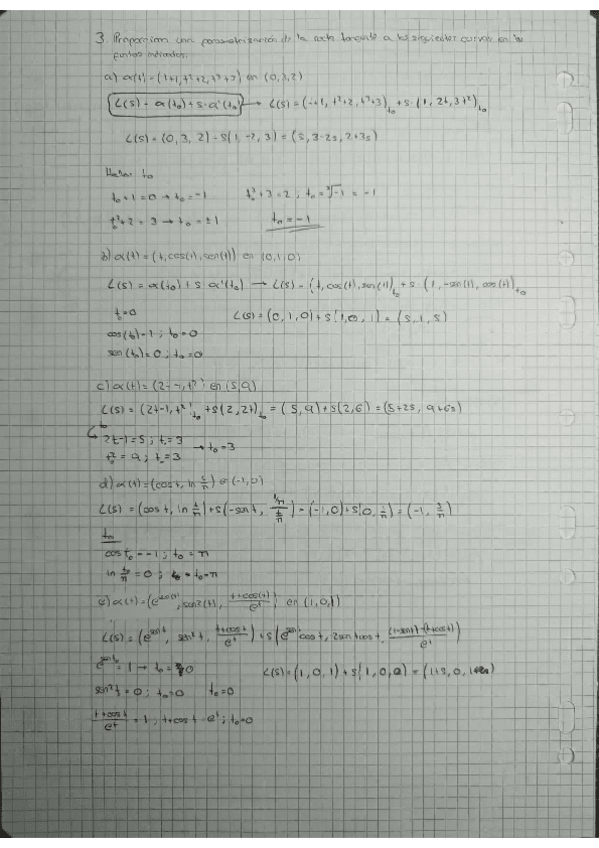 3. Proporcionar una parametrización de la recta tangente a las siguientes curvas en los
puntos indicados.
a) α(t) = (t+1, t²+2, t³+3) en (0,3,2)
L(s) = α(t₀) + s·α'(t₀) → L(s) = (t+1, t²+2, t³+3)t₀ + s·(1, 2t, 3t²)t₀
L(s) = (0, 3, 2) + s(1, -2, 3) = (s, 3-2s, 2+3s)
Hallar t₀
t₀+1 = 0 → t₀ = -1 t₀³+3 = 2, t₀ = ∛-1 = -1
t₀²+2 = 3 → t₀ = ±1 t₀ = -1
b) α(t) = (t, cos(t), sen(t)) en (0,1,0)
L(s) = α(t₀) + s α'(t₀) → L(s) = (t, cos(t), sen(t))t₀ + s·(1, -sen(t), cos(t))t₀
t₀ = 0 L(s) = (0, 1, 0) + s(1, 0, 1) = (s, 1, s)
cos(t₀) = 1; t₀ = 0
sen(t₀) = 0; t₀ = 0
c) α(t) = (2t-1, t²) en (5,9)
L(s) = (2t-1, t²)t₀ + s(2, 2t)t₀ = (5, 9) + s(2, 6) = (5+2s, 9+6s)
2t-1 = 5; t₀ = 3 → t₀ = 3
t₀² = 9; t₀ = 3
d) α(t) = (cos t, ln t/π) en (-1,0)
L(s) = (cos t, ln t/π) + s(-sen t, (1/π)/(t/π)) = (-1, 0) + s(0, 1/π) = (-1, s/π)
t₀
cos t₀ = -1; t₀ = π
ln t₀/π = 0; t₀ = π
e) α(t) = (e^sen(t), sen²(t), (t+cos(t))/e^t) en (1,0,1)
L(s) = (e^sen t, sen² t, (t+cos t)/e^t) + s(e^sen t cos t, 2 sen t cos t, ((1-sen t)-(t+cos t))/e^t)
e^sen t₀ = 1 → t₀ = 0 L(s) = (1, 0, 1) + s(1, 0, 0) = (1+s, 0, 1)
sen² t = 0; t₀ = 0 t₀ = 0
(t+cos t)/e^t = 1; t+cos t = e^t; t₀ = 0